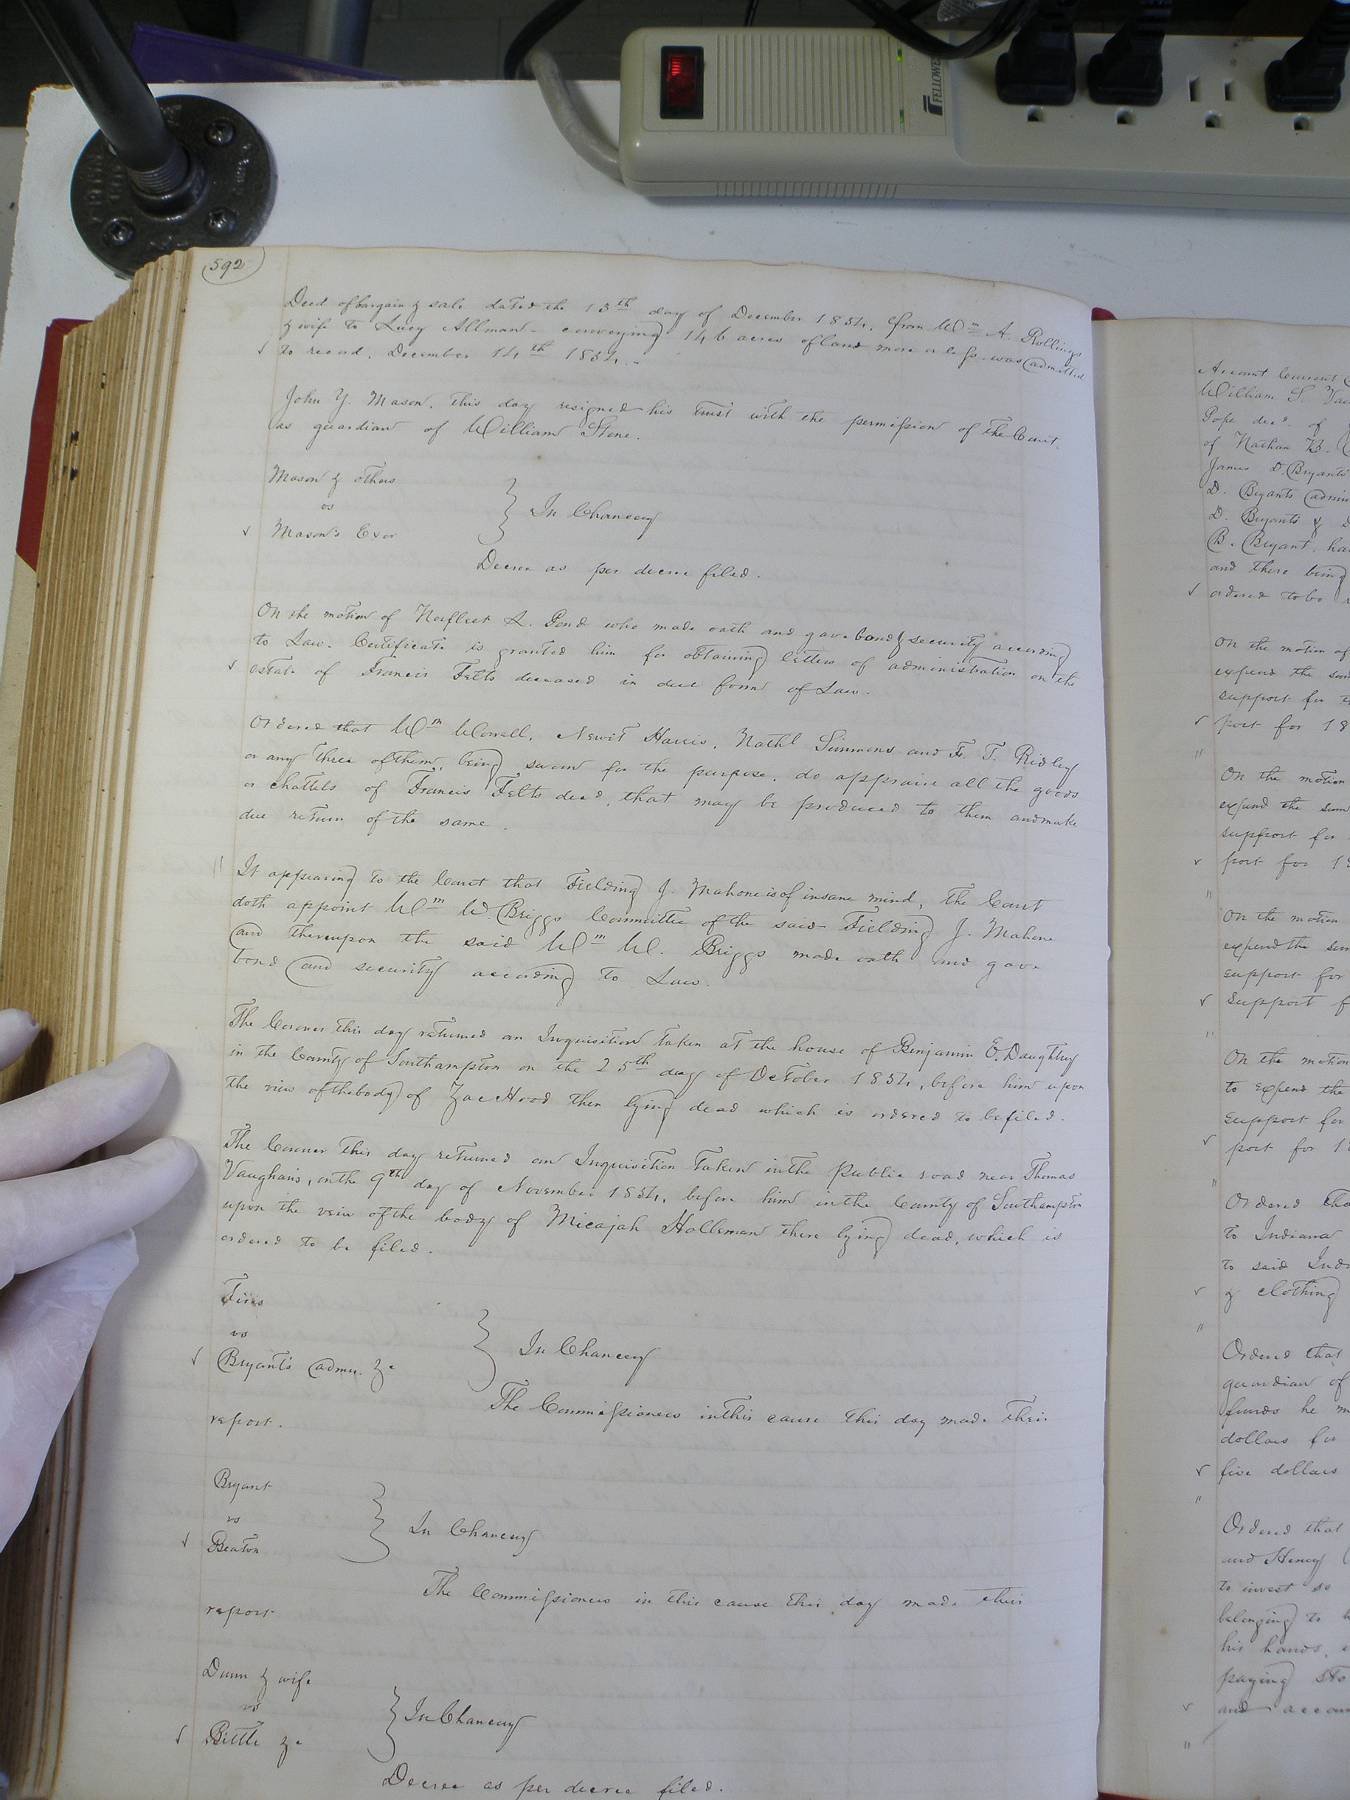 592
Deed of bargain & sale dated the 13th day of December 1854, from Wm A. Rollings
& wife to Lucy Allmans conveying 146 acres of land more or less was admitted
to record, December 14th 1854.
John Y. Mason, this day resigned his trust with the permission of the Court.
as guardian of William Stone.
Mason & others
vs
Mason's Exor
In Chancery
Decree as per decree filed.
On the motion of Norfleet R. Pond who made oath and gave bond & security according
to Law. Certificate is granted him for obtaining letters of administration on the
estate of Francis Felts deceased in due form of Law.
Ordered that Wm Worrell, Newit Harris, Nathl Simmons and F. T. Ridley
or any three of them, being sworn for the purpose, do appraise all the goods
or chattels of Francis Felts decd, that may be produced to them and make
due return of the same.
It appearing to the Court that Fielding J. Mahone is of insane mind, the Court
doth appoint Wm W. Briggs Committee of the said Fielding J. Mahone
and thereupon the said Wm W. Briggs made oath and gave
bond and security according to Law.
The Coroner this day returned an Inquisition taken at the house of Benjamin E. Daughtrey
in the County of Southampton on the 25th day of October 1854, before him upon
the view of the body of Zac Hood then lying dead which is ordered to be filed.
The Coroner this day returned an Inquisition taken in the public road near Thomas
Vaughans, on the 9th day of November 1854, before him in the County of Southampton
upon the veiw of the body of Micajah Holleman there lying dead, which is
ordered to be filed.
vs
Bryant's admr. &c
In Chancery
The Commissioners in this cause this day made their
report.
Bryant
vs
Beaton
In Chancery
The Commissioners in this cause this day made their
report
Dunn & wife
vs
Bittle &c
In Chancery
Decree as per decree filed.
Account Current
William S.
Pope decd. of
of Nathan B.
James D. Bryants
D. Bryants admin
D. Bryants &
B. Bryant. ha
and there being
ordered to be
On the motion of
expend the sum
support for
port for 18
On the motion
expend the sum
support for
port for 18
On the motion
expend the sum
support for
support f
On the motion
to expend the
support for
port for 18
Ordered tha
to Indiana
to said Ind
& clothing
Ordered that
guardian of
funds he m
dollars for
five dollars
Ordered that
and Henry
to invest so
belonging to
his hands,
paying
and accou
FELLOWES